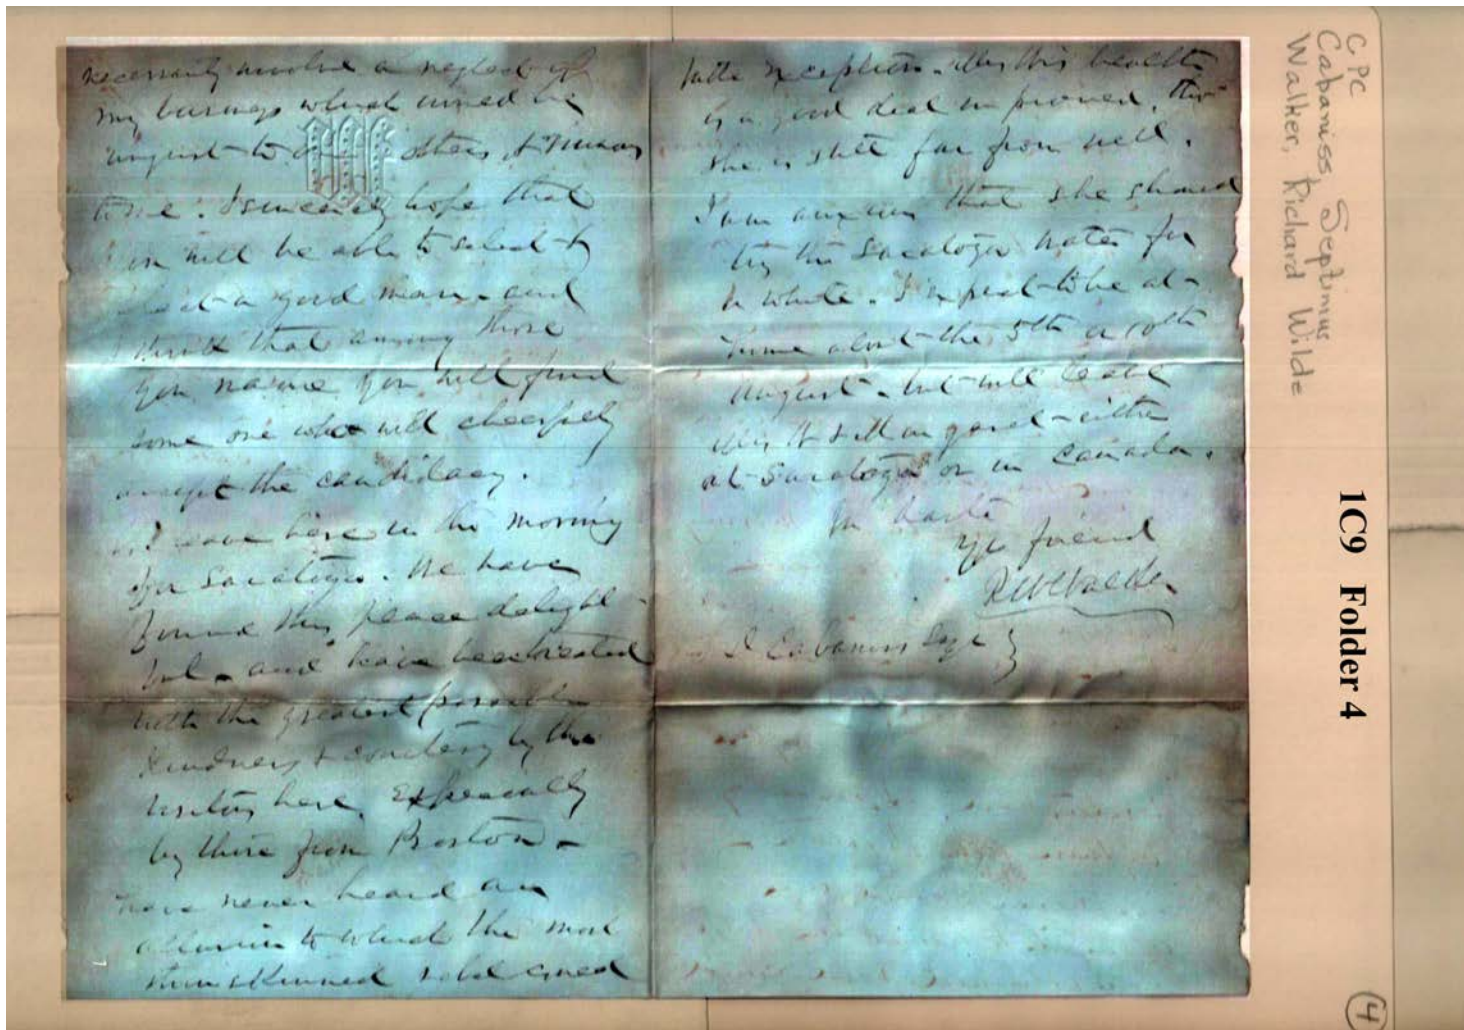 necessarily involve a neglect of
my business which would be
unjust to others, & ruinous
to me. I sincerely hope that
you will be able to select
a good man - and
I think that among those
you name you will find
some one who will cheerfully
accept the candidacy.
leave here in the morning
for Saratoga. We have
found this place delight
ful - and have been treated
with the greatest possible
kindness & courtesy by the
visitors here, Especially
by those from Boston -
have never heard an
allusion to which the most
thin skinned rebel could
take exception. this health
is a good deal improved, tho'
she is still far from well.
I am anxious that she should
try the Saratoga water for
a while. I expect to be at
home about the 5th or 10th
August - but will leave
at Saratoga or in Canada.
In haste
Yr friend
RWWalker
S Cabaniss Esqr }
CPC
Cabaniss, Septimus
Walker, Richard Wilde
1C9 Folder 4
4